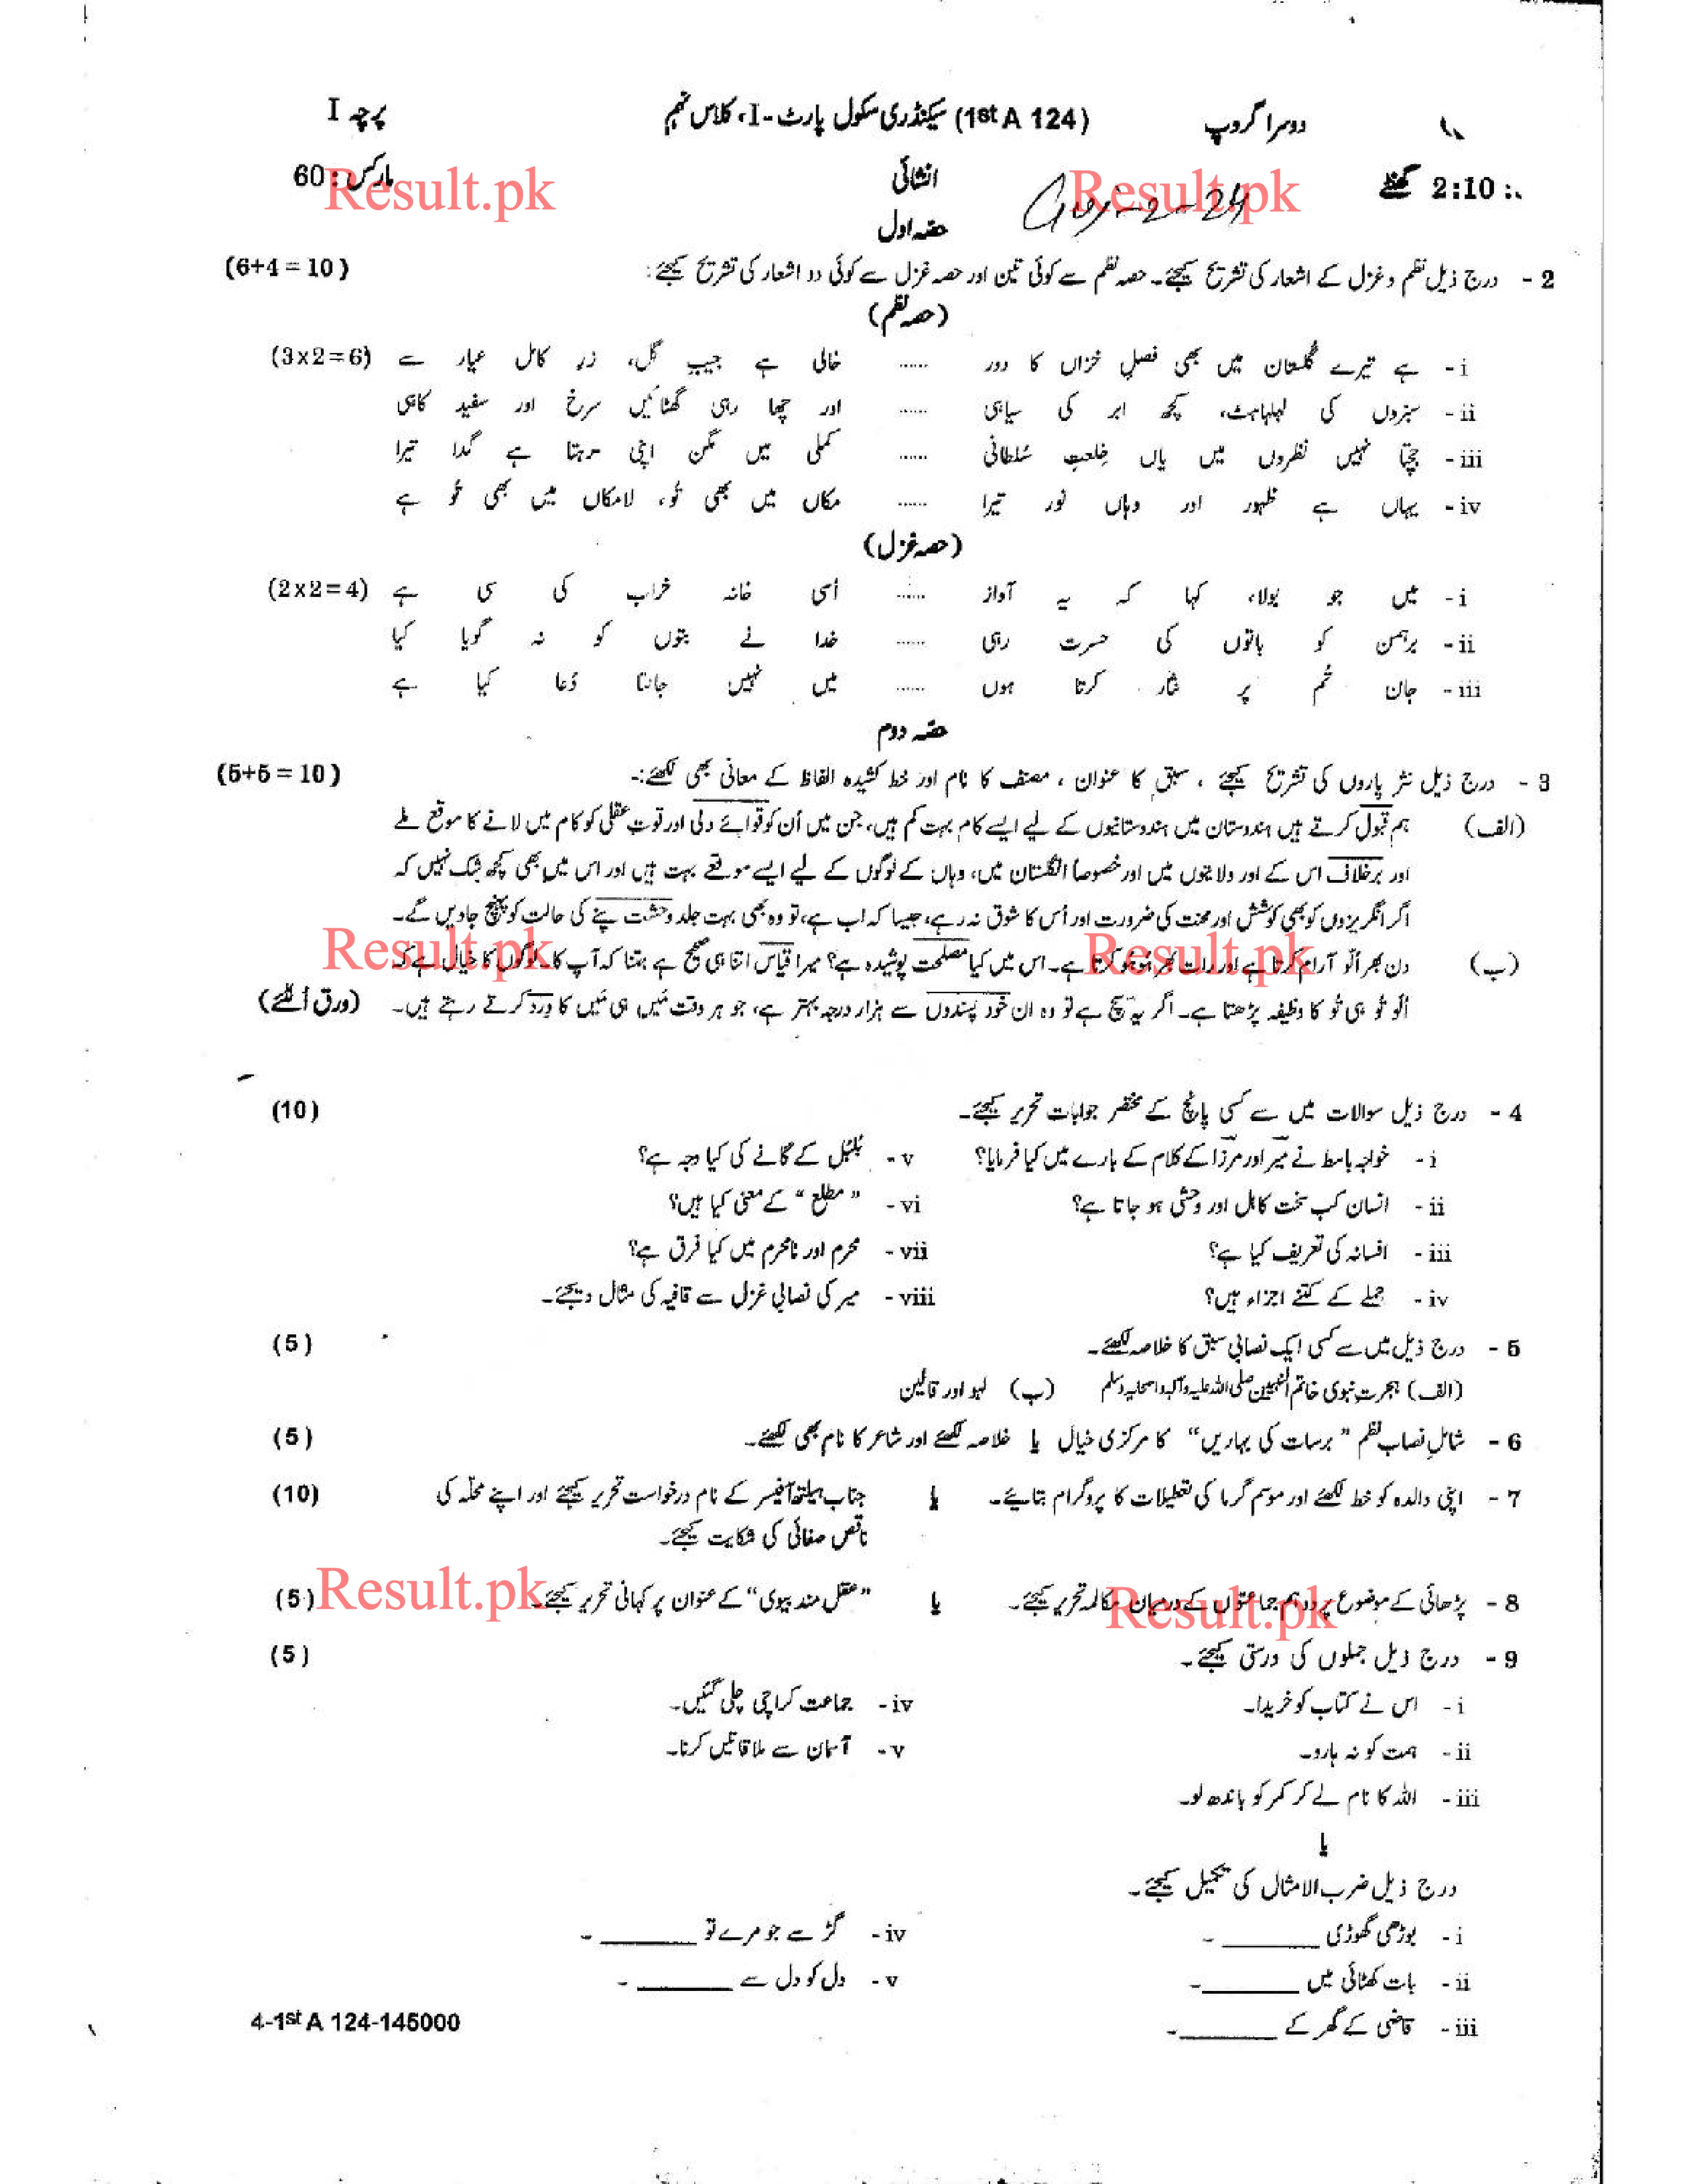 دوسرا گروپ (1st A 124) سیکنڈری سکول پارٹ-I، کلاس نہم پرچہ I
2:10 گھنٹے انشائی مارکس : 60
Result.pk Result.pk
حصہ اول
2 - درج ذیل نظم و غزل کے اشعار کی تشریح کیجئے۔ حصہ نظم سے کوئی تین اور حصہ غزل سے کوئی دو اشعار کی تشریح کیجئے: (6+4 = 10)
(حصہ نظم)
i - ہے تیرے گلستان میں بھی فصلِ خزاں کا دور ...... خالی ہے جیبِ گل، زرِ کامل عیار سے (3x2=6)
ii - سبزوں کی لہلہاہٹ، کچھ ابر کی سیاہی ...... اور چھا رہی گھٹائیں سرخ اور سفید کاہی
iii - جچتا نہیں نظروں میں یاں خِلعتِ سُلطانی ...... کملی میں مگن اپنی رہتا ہے گدا تیرا
iv - یہاں ہے ظہور اور وہاں نور تیرا ...... مکاں میں بھی تُو، لامکاں میں بھی تُو ہے
(حصہ غزل)
i - میں جو بولا، کہا کہ یہ آواز ...... اُسی خانہ خراب کی سی ہے (2x2=4)
ii - برہمن کو باتوں کی حسرت رہی ...... خدا نے بتوں کو نہ گویا کیا
iii - جان تُم پر نثار کرتا ہوں ...... میں نہیں جانتا دُعا کیا ہے
حصہ دوم
3 - درج ذیل نثر پاروں کی تشریح کیجئے ، سبق کا عنوان ، مصنف کا نام اور خط کشیدہ الفاظ کے معانی بھی لکھئے:- (5+5 = 10)
(الف) ہم قبول کرتے ہیں ہندوستان میں ہندوستانیوں کے لیے ایسے کام بہت کم ہیں، جن میں اُن کو قوائے دلی اور قوتِ عقلی کو کام میں لانے کا موقع ملے
اور برخلاف اس کے اور ولایتوں میں اور خصوصاً انگلستان میں، وہاں کے لوگوں کے لیے ایسے موقعے بہت ہیں اور اس میں بھی کچھ شک نہیں کہ
اگر انگریزوں کو بھی کوشش اور محنت کی ضرورت اور اُس کا شوق نہ رہے، جیسا کہ اب ہے، تو وہ بھی بہت جلد وحشت پنے کی حالت کو پہنچ جاویں گے۔
Result.pk Result.pk
(ب) دن بھر اُلّو آرام کرتا ہے اور رات بھر ہُو ہُو کرتا ہے۔ اس میں کیا مصلحت پوشیدہ ہے؟ میرا قیاس اتنا ہی صحیح ہے جتنا کہ آپ کا۔ لوگوں کا خیال ہے کہ
اُلّو تُو ہی تُو کا وظیفہ پڑھتا ہے۔ اگر یہ سچ ہے تو وہ ان خود پسندوں سے ہزار درجہ بہتر ہے، جو ہر وقت مَیں ہی مَیں کا ورد کرتے رہتے ہیں۔ (ورق اُلٹئے)
4 - درج ذیل سوالات میں سے کسی پانچ کے مختصر جوابات تحریر کیجئے۔ (10)
i - خواجہ باسط نے میر اور مرزا کے کلام کے بارے میں کیا فرمایا؟ v - بُلبُل کے گانے کی کیا وجہ ہے؟
ii - انسان کب سخت کاہل اور وحشی ہو جاتا ہے؟ vi - "مطلع" کے معنی کیا ہیں؟
iii - افسانہ کی تعریف کیا ہے؟ vii - محرم اور نامحرم میں کیا فرق ہے؟
iv - جملے کے کتنے اجزاء ہیں؟ viii - میر کی نصابی غزل سے قافیہ کی مثال دیجئے۔
5 - درج ذیل میں سے کسی ایک نصابی سبق کا خلاصہ لکھئے۔ (5)
(الف) ہجرتِ نبوی خاتم النبیین صلی اللہ علیہ وآلہ واصحابہ وسلم (ب) لہو اور قالین
6 - شاملِ نصاب نظم "برسات کی بہاریں" کا مرکزی خیال یا خلاصہ لکھئے اور شاعر کا نام بھی لکھئے۔ (5)
7 - اپنی والدہ کو خط لکھئے اور موسم گرما کی تعطیلات کا پروگرام بتائیے۔ یا جناب ہیلتھ آفیسر کے نام درخواست تحریر کیجئے اور اپنے محلّہ کی (10)
ناقص صفائی کی شکایت کیجئے۔
Result.pk Result.pk
8 - پڑھائی کے موضوع پر دو ہم جماعتوں کے درمیان مکالمہ تحریر کیجئے۔ یا "عقل مند بیوی" کے عنوان پر کہانی تحریر کیجئے۔ (5)
9 - درج ذیل جملوں کی درستی کیجئے۔ (5)
i - اس نے کتاب کو خریدا۔ iv - جماعت کراچی چلی گئیں۔
ii - ہمت کو نہ ہارو۔ v - آسمان سے ملاقاتیں کرنا۔
iii - اللہ کا نام لے کر کمر کو باندھ لو۔
یا
درج ذیل ضرب الامثال کی تکمیل کیجئے۔
i - بوڑھی گھوڑی ______ ۔ iv - گڑ سے جو مرے تو ______ ۔
ii - بات کھٹائی میں ______ ۔ v - دل کو دل سے ______ ۔
iii - قاضی کے گھر کے ______ ۔
4-1st A 124-145000